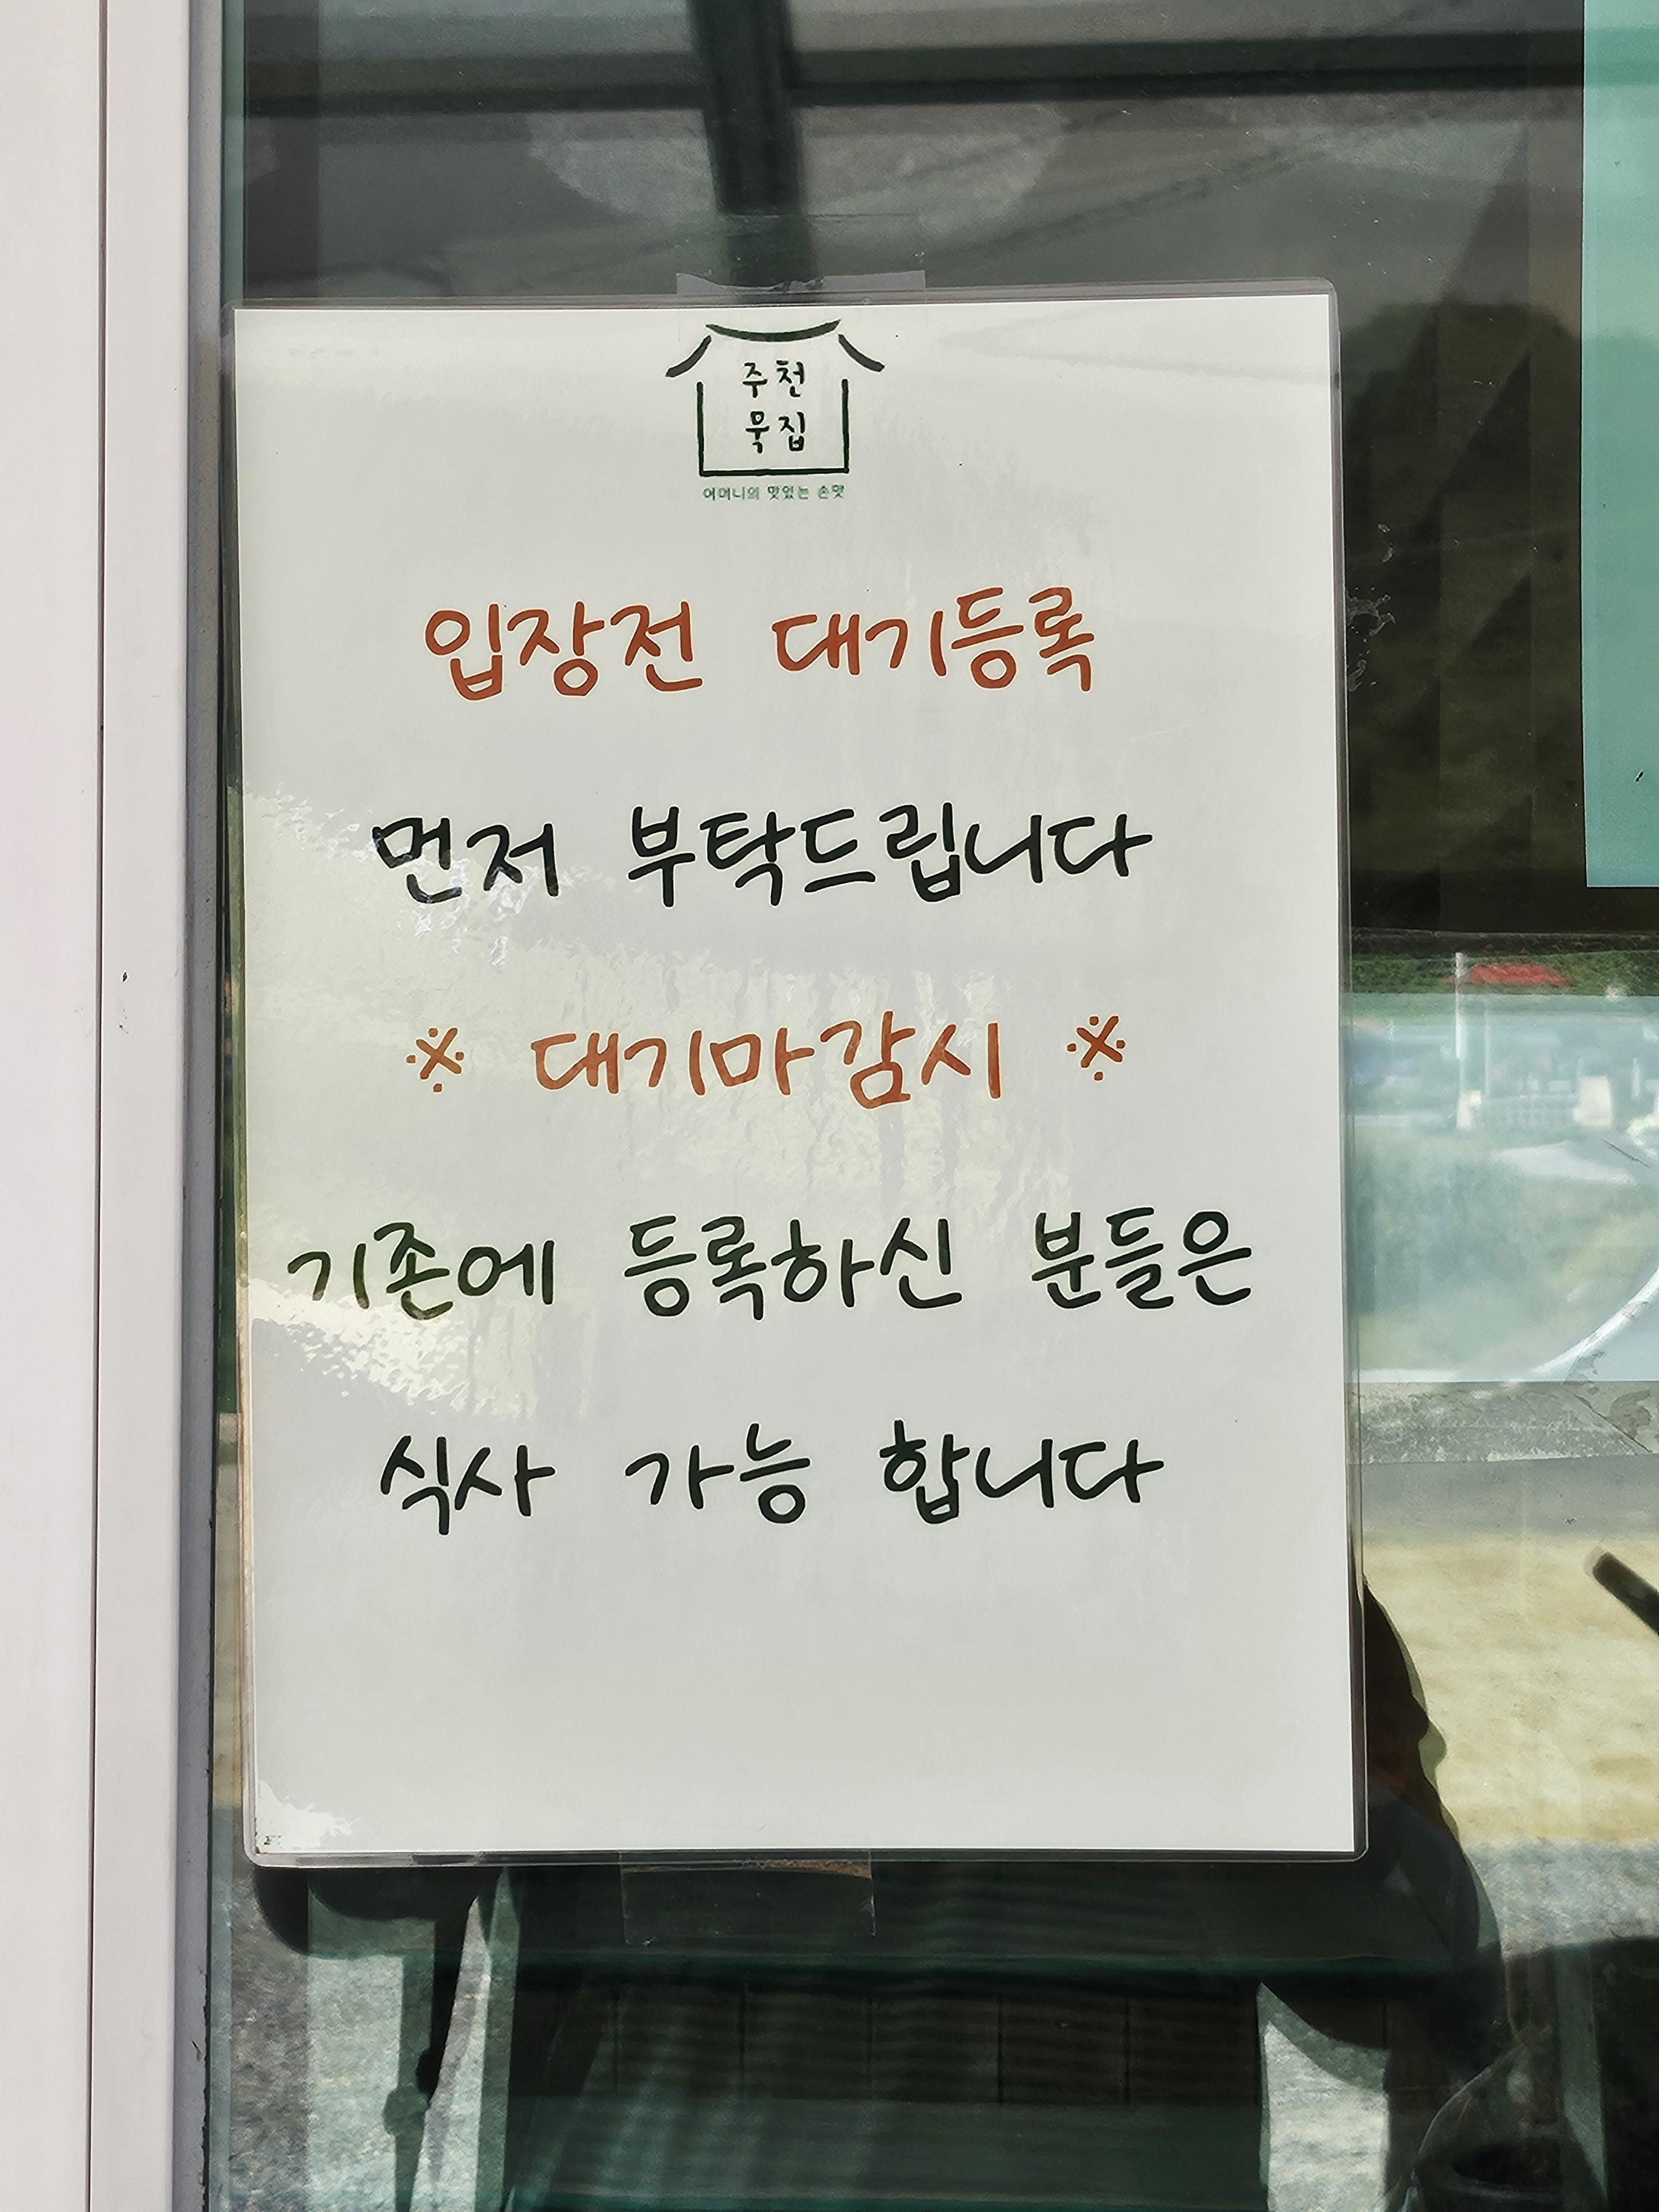 주천
묵집
어머니의 맛있는 손맛
입장전 대기등록
먼저 부탁드립니다
※ 대기마감시 ※
기존에 등록하신 분들은
식사 가능 합니다